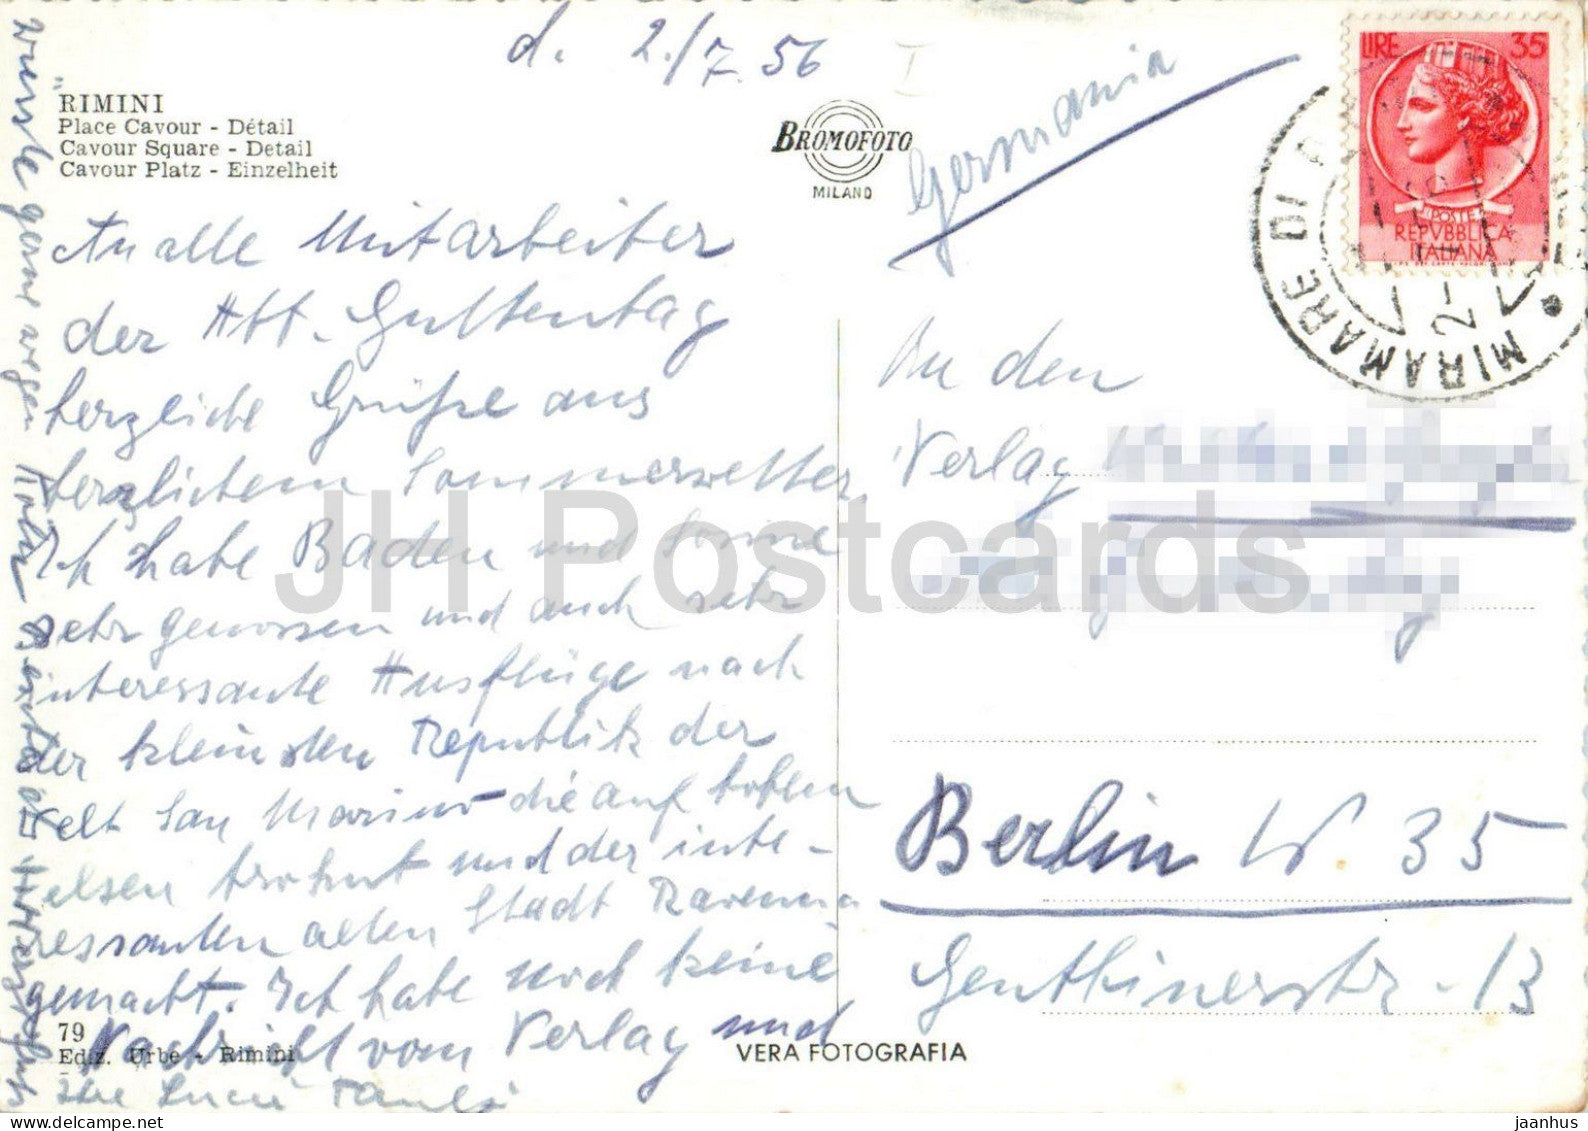 d. 2./7.56
"RIMINI
Place Cavour - Détail
Cavour Square - Detail
Cavour Platz - Einzelheit
BROMOFOTO
MILANO
Germania
LIRE 35
POSTE
REPVBBLICA
ITALIANA
MIRAMARE DI
An alle Mitarbeiter
der Abt. Guttentag
herzliche Grüße aus
herrlichem Sommerwetter.
Ich habe Baden und Sonne
sehr genossen und auch sehr
interessante Ausflüge nach
der kleinsten Republik der
Welt San Marino die auf hohen
Felsen thront und der inte-
ressanten alten Stadt Ravenna
gemacht. Ich habe noch keine
Nachricht vom Verlag und
wüsste gerne wegen
Ihre
An den
Verlag
Berlin W. 35
Genthinerstr. 13
79
Ediz. Urbe - Rimini
VERA FOTOGRAFIA
JH Postcards
www.delcampe.net
jaanhus